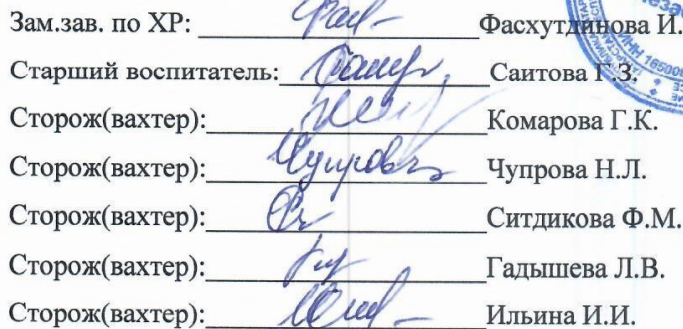 Зам.зав. по ХР: Фасхутдинова И.
Старший воспитатель: Саитова Г.З.
Сторож(вахтер): Комарова Г.К.
Сторож(вахтер): Чупрова Н.Л.
Сторож(вахтер): Ситдикова Ф.М.
Сторож(вахтер): Гадышева Л.В.
Сторож(вахтер): Ильина И.И.